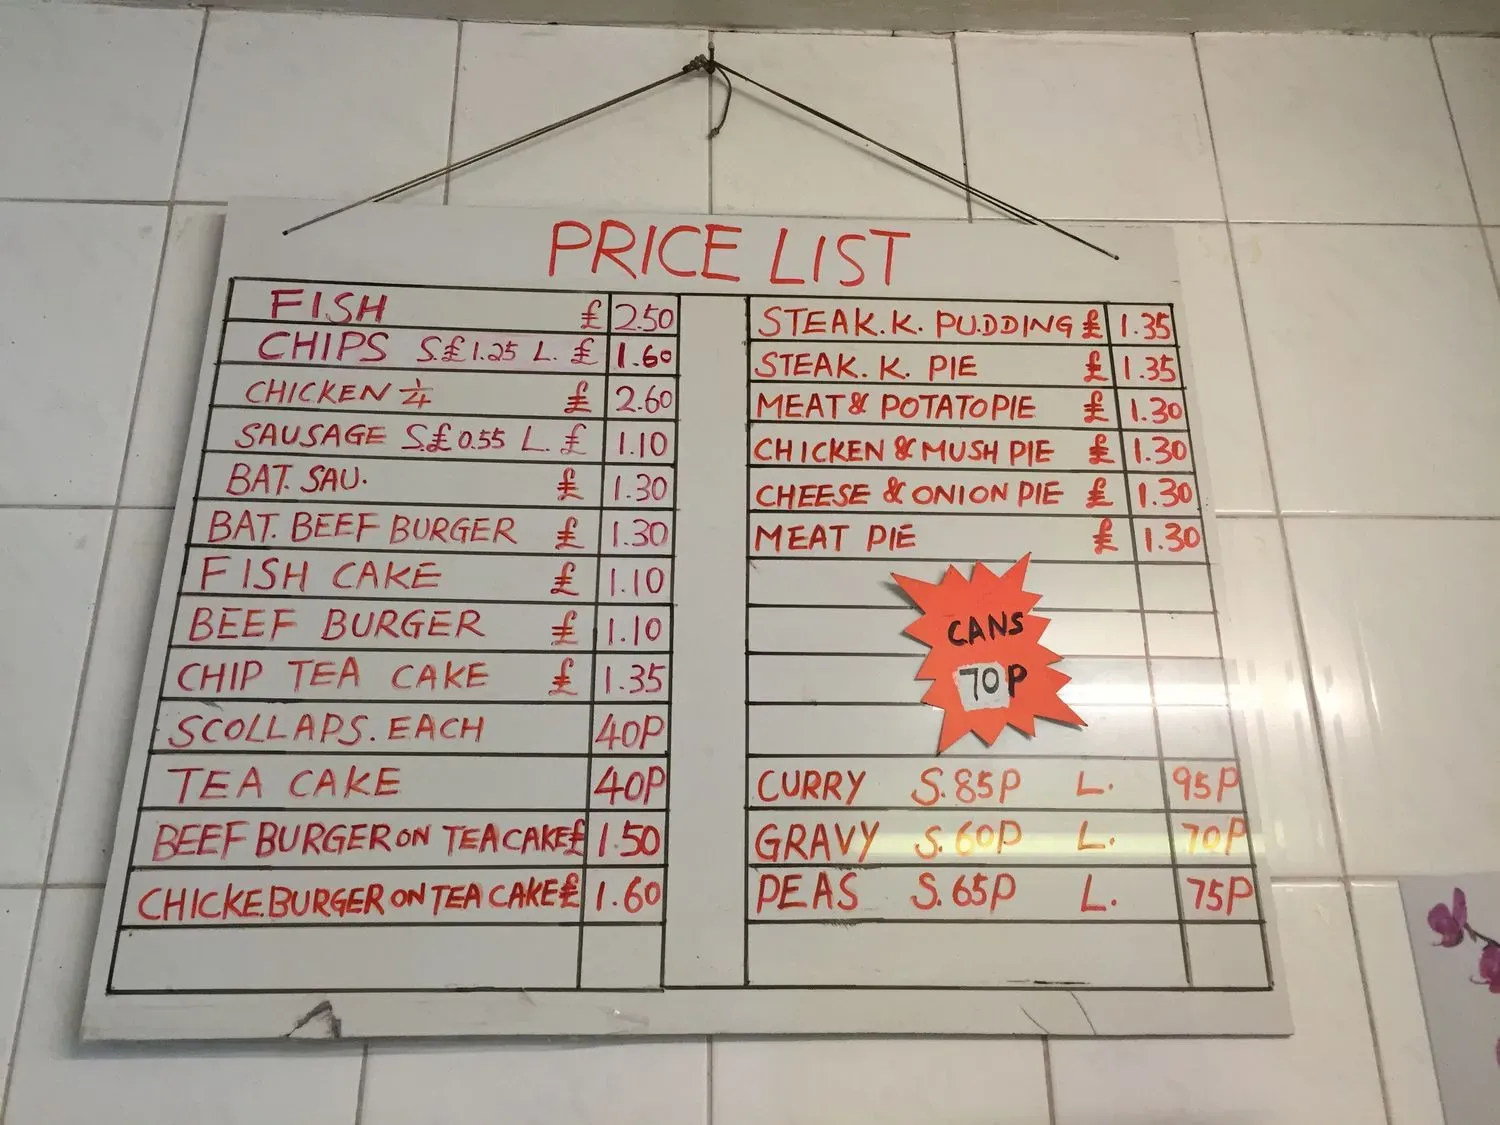 PRICE LIST
FISH £ 2.50
CHIPS S.£1.25 L. £ 1.60
CHICKEN ¼ £ 2.60
SAUSAGE S.£0.55 L. £ 1.10
BAT. SAU. £ 1.30
BAT. BEEF BURGER £ 1.30
FISH CAKE £ 1.10
BEEF BURGER £ 1.10
CHIP TEA CAKE £ 1.35
SCOLLAPS. EACH 40P
TEA CAKE 40P
BEEF BURGER ON TEA CAKE £ 1.50
CHICKE.BURGER ON TEA CAKE £ 1.60
STEAK. K. PUDDING £ 1.35
STEAK. K. PIE £ 1.35
MEAT & POTATO PIE £ 1.30
CHICKEN & MUSH PIE £ 1.30
CHEESE & ONION PIE £ 1.30
MEAT PIE £ 1.30
CANS
70P
CURRY S. 85P L. 95P
GRAVY S. 60P L. 70P
PEAS S. 65P L. 75P